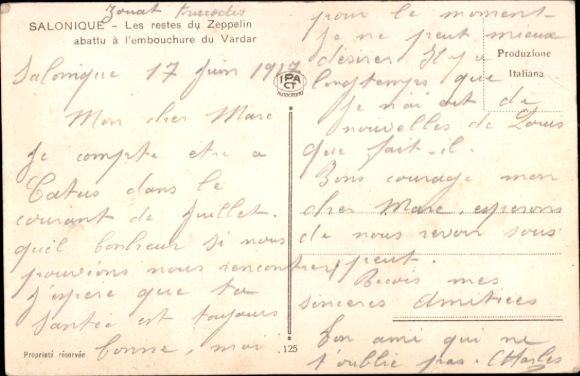 SALONIQUE – Les restes du Zeppelin
abattu à l'embouchure du Vardar
Salonique 17 Juin 1917
Mon cher Marc
Je compte etre a
Catus dans le
courant de Juillet.
quel bonheur si nous
pouvions nous rencontrer
J'espere que ta
Santée est toujours
bonne, moi
pour le moment
Je ne peut mieux
désirer Il y a
longtemps que
Je n'ai eut de
nouvelles de Louis
que fait-il.
Bons courage mon
cher Marc, esperons
de nous revoir sous
peut.
Recois mes
sinceres Amitiées
Ton ami qui ne
t'oublie pas. Charles
Produzione
Italiana
IPA
CT
AUTOCROMO
Proprieté réservée
125